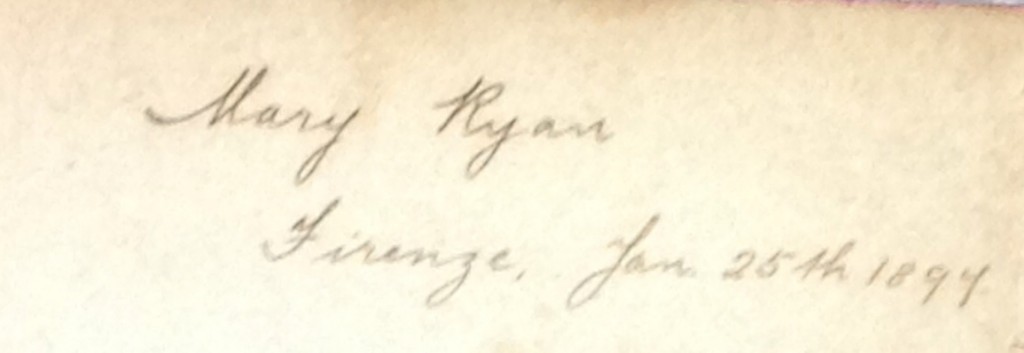 Mary Ryan
Firenze, Jan. 25th 1894